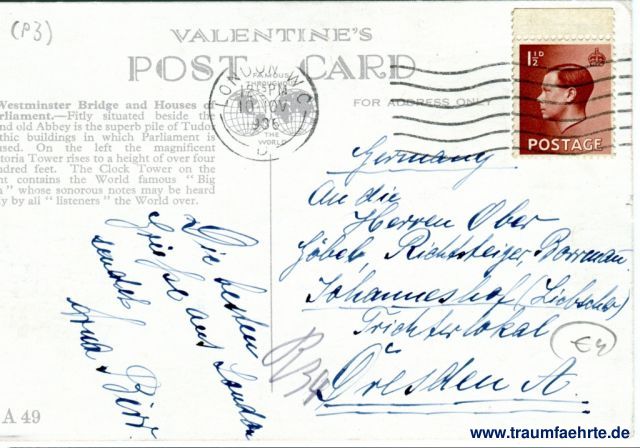 (P3)
VALENTINE'S
POST CARD
FAMOUS
THROUGHOUT
THE
WORLD
FOR ADDRESS ONLY
LONDON. W.C.
PM
10 NOV
1936
1½D
POSTAGE
Westminster Bridge and Houses of
rliament.—Fitly situated beside the
nd old Abbey is the superb pile of Tudo
thic buildings in which Parliament is
used. On the left the magnificent
toria Tower rises to a height of over four
ndred feet. The Clock Tower on the
nt contains the World famous "Big
n" whose sonorous notes may be heard
ly by all "listeners" the World over.
Die besten
Grüße aus London
sendet
Germany
An die
Herren Ober
Göbel, Richtsteiger,
Johanneshof
Trichterlokal
Dresden A.
€4
A 49
www.traumfaehrte.de